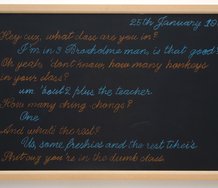 25th January 19
Hey cuz, what class are you in?
I'm in 3 Brookdene man, is that good?
Oh yeah, don't know, how many honkeys
in your class?
um, 'bout 2 plus the teacher
How many ching chongs?
One
And whats the rest?
Us, some freshies and the rest tikeis
cuz you're in the dumb class